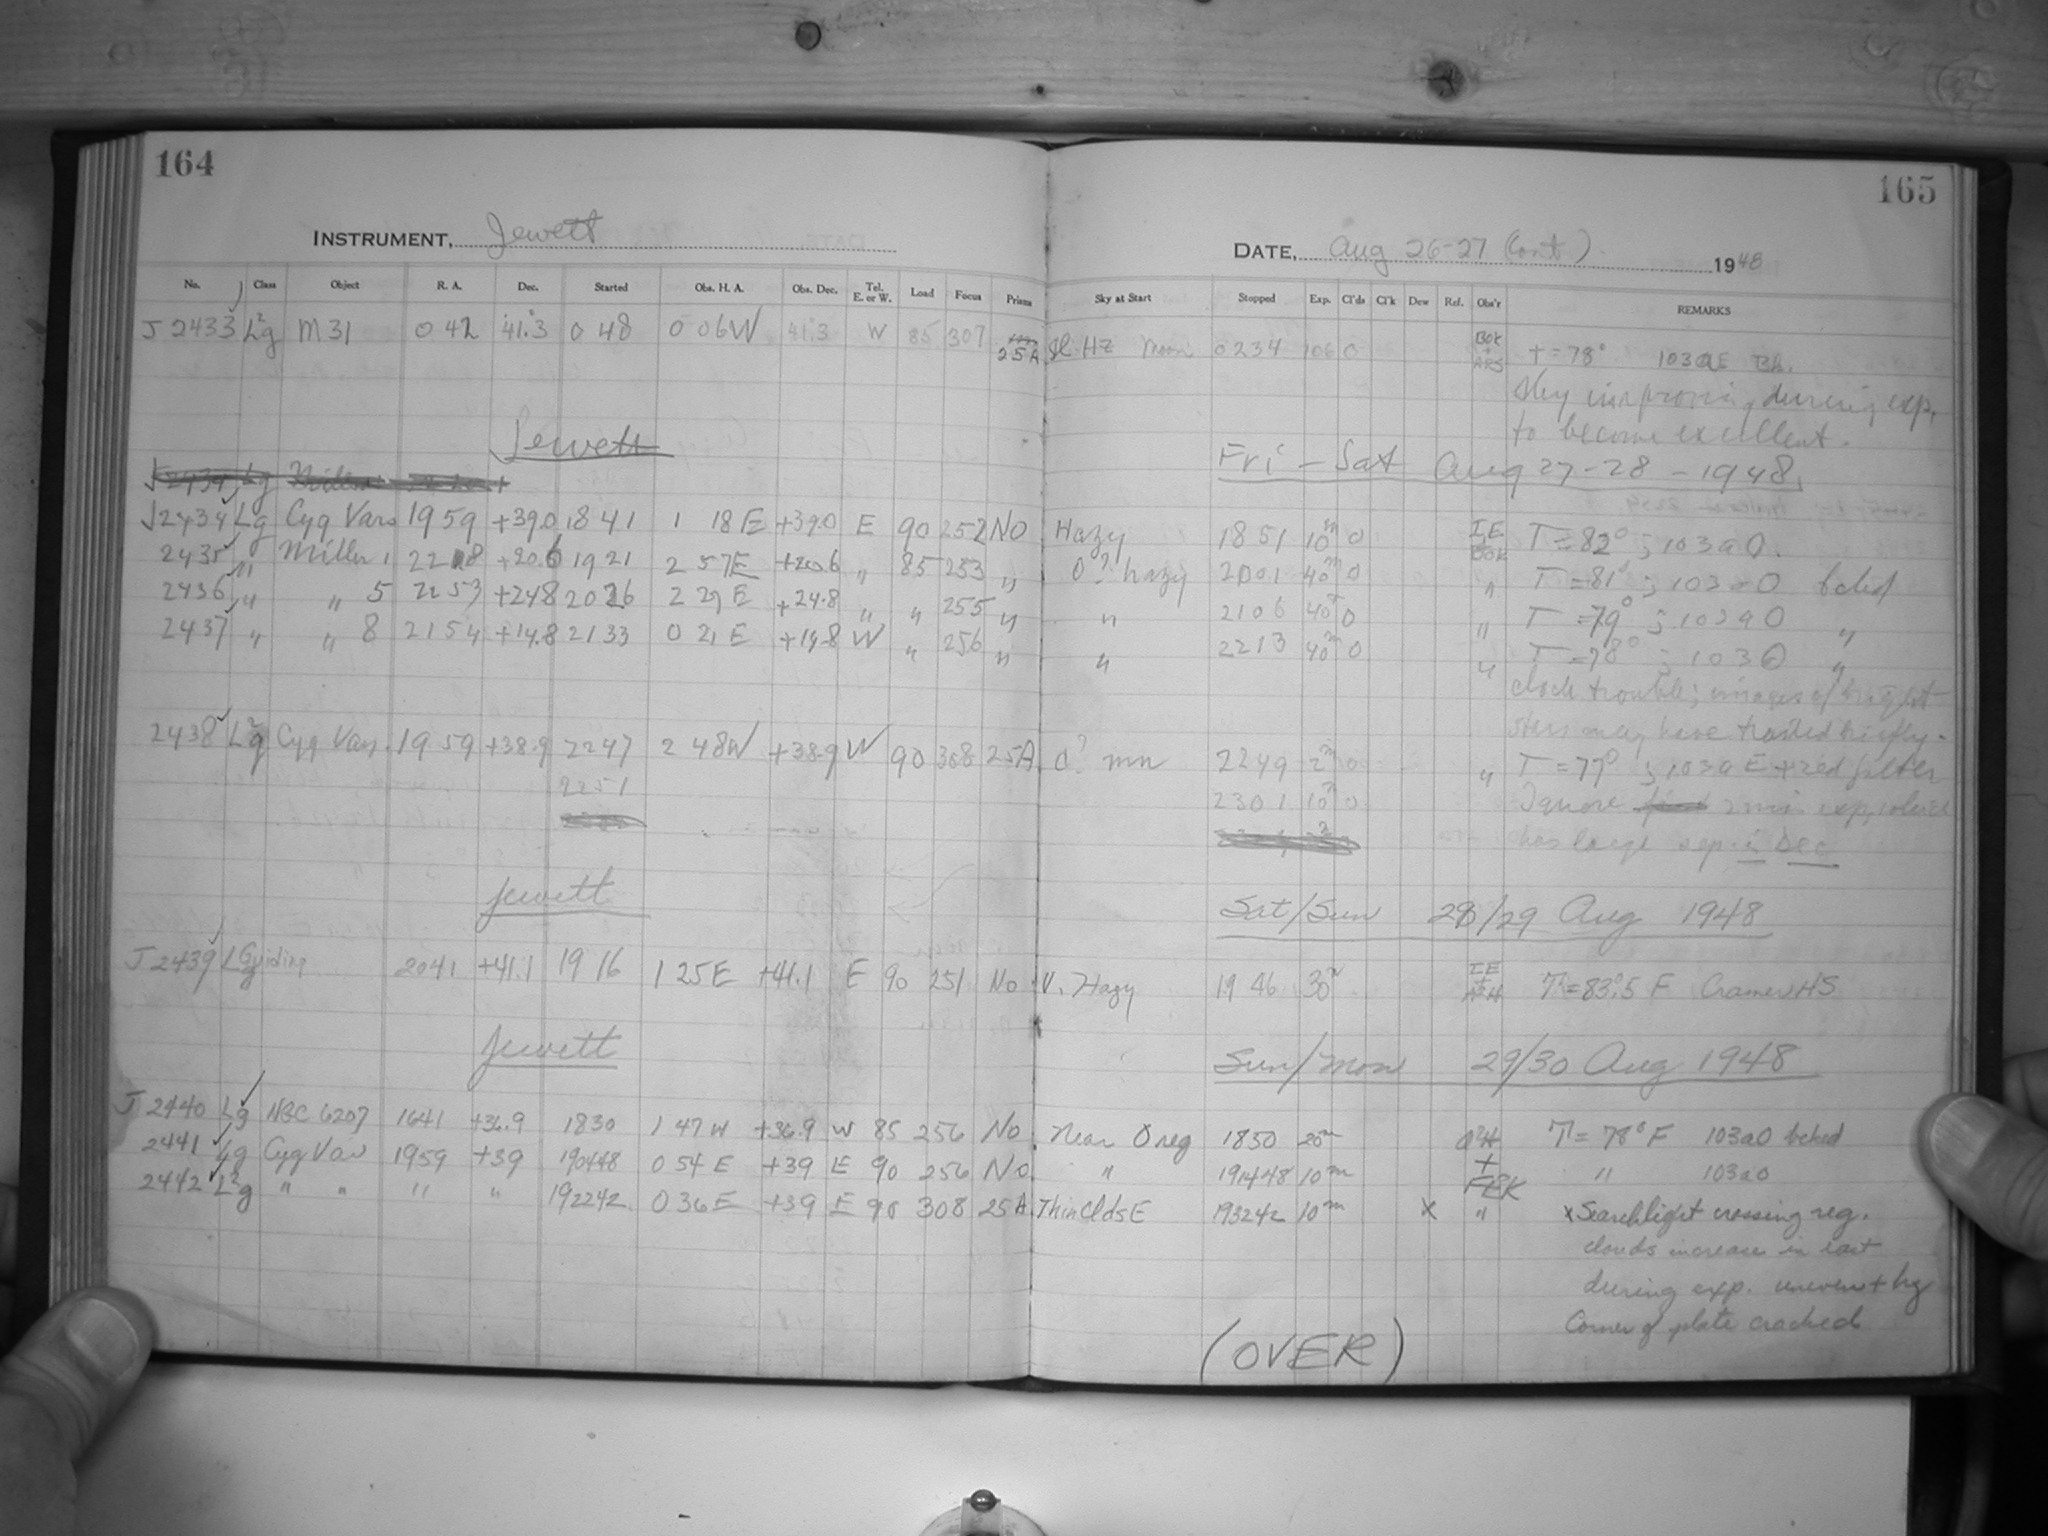 164
165
INSTRUMENT, Jewett
DATE, Aug 26-27 (Cont) 1948
No. Class Object R. A. Dec. Started Obs. H. A. Obs. Dec. Tel. E. or W. Load Focus Prism Sky at Start Stopped Exp. Cl'ds Cl'k Dew Ref. Obs'r REMARKS
J 2433 L²g M31 0 42 41.°3 0 48 0 06W 41.3 W 85 307 25A Sl. Hz Moon 0234 106 0 BOK + ARS T=78° 103aE Bk.
Sky improving during exp.
to become excellent.
Jewett Fri - Sat Aug 27-28 - 1948.
J2434 Lg Cyg Vars 1959 +39.0 1841 1 18E +39.0 E 90 252 No Hazy 1851 10m 0 I.E + BOK T=82°; 103aO.
2435 " Miller 1 22 18 +20.6 1921 2 57E +20.6 " 85 253 " 0? hazy 2001 40m 0 " T=81°; 103aO baked
2436 " " 5 2253 +24.8 2026 2 27E +24.8 " " 255 " " 2106 40m 0 " T=79°; 103aO "
2437 " " 8 2154 +14.8 2133 0 21E +14.8 W " 256 " " 2213 40m 0 " T=78°; 103O "
clock trouble; images of bright
stars may have trailed briefly.
2438 L²g Cyg Var. 1959 +38.9 2247 2 48W +38.9 W 90 308 25A 0? mn 2249 2m 0 " T=77°; 103aE + red filter
2251 2301 10m 0 Ignore 2 min exp, which
has large sep in Dec
Jewett Sat/Sun 28/29 Aug 1948
J2439 Lg Guiding 2041 +41.1 1916 1 25E +41.1 E 90 251 No V. Hazy 1946 30m IE + T=83.°5 F Cramer HS
Jewett Sun/Mon 29/30 Aug 1948
J 2440 Lg NGC 6207 1641 +36.9 1830 1 47W +36.9 W 85 256 No Near 0 reg 1850 20m T= 78°F 103aO baked
2441 Lg Cyg Var 1959 +39 190448 0 54E +39 E 90 256 No " 191448 10m + " 103aO
2442 L²g " " " " 192242 0 36E +39 E 90 308 25A Thin Clds E 193242 10m x " x Searchlight crossing reg.
clouds increase in east
during exp. uneven + hz
Corner of plate cracked
(OVER)